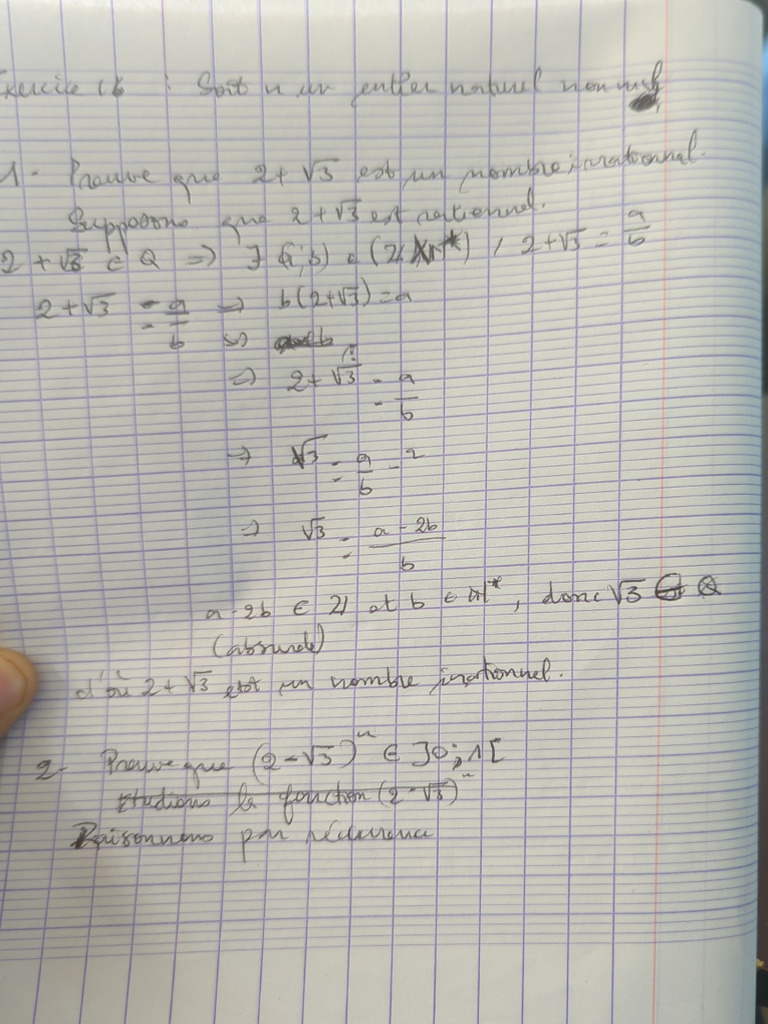 Exercice 16 : Soit n un entier naturel non nul
1 - Prouve que 2 + √3 est un nombre irrationnel.
Supposons que 2 + √3 est rationnel.
2 + √3 ∈ Q => ∃ (a; b) ∈ (Z × N*) / 2 + √3 = a/b
2 + √3 = a/b => b(2 + √3) = a
=> 2 + √3 = a/b
=> √3 = a/b - 2
=> √3 = (a - 2b)/b
a - 2b ∈ Z et b ∈ N*, donc √3 ∈ Q
(absurde)
d'où 2 + √3 est un nombre irrationnel.
2 - Prouve que (2 - √3)^n ∈ ]0; 1[
Etudions la fonction (2 - √3)^n
Raisonnons par récurrence